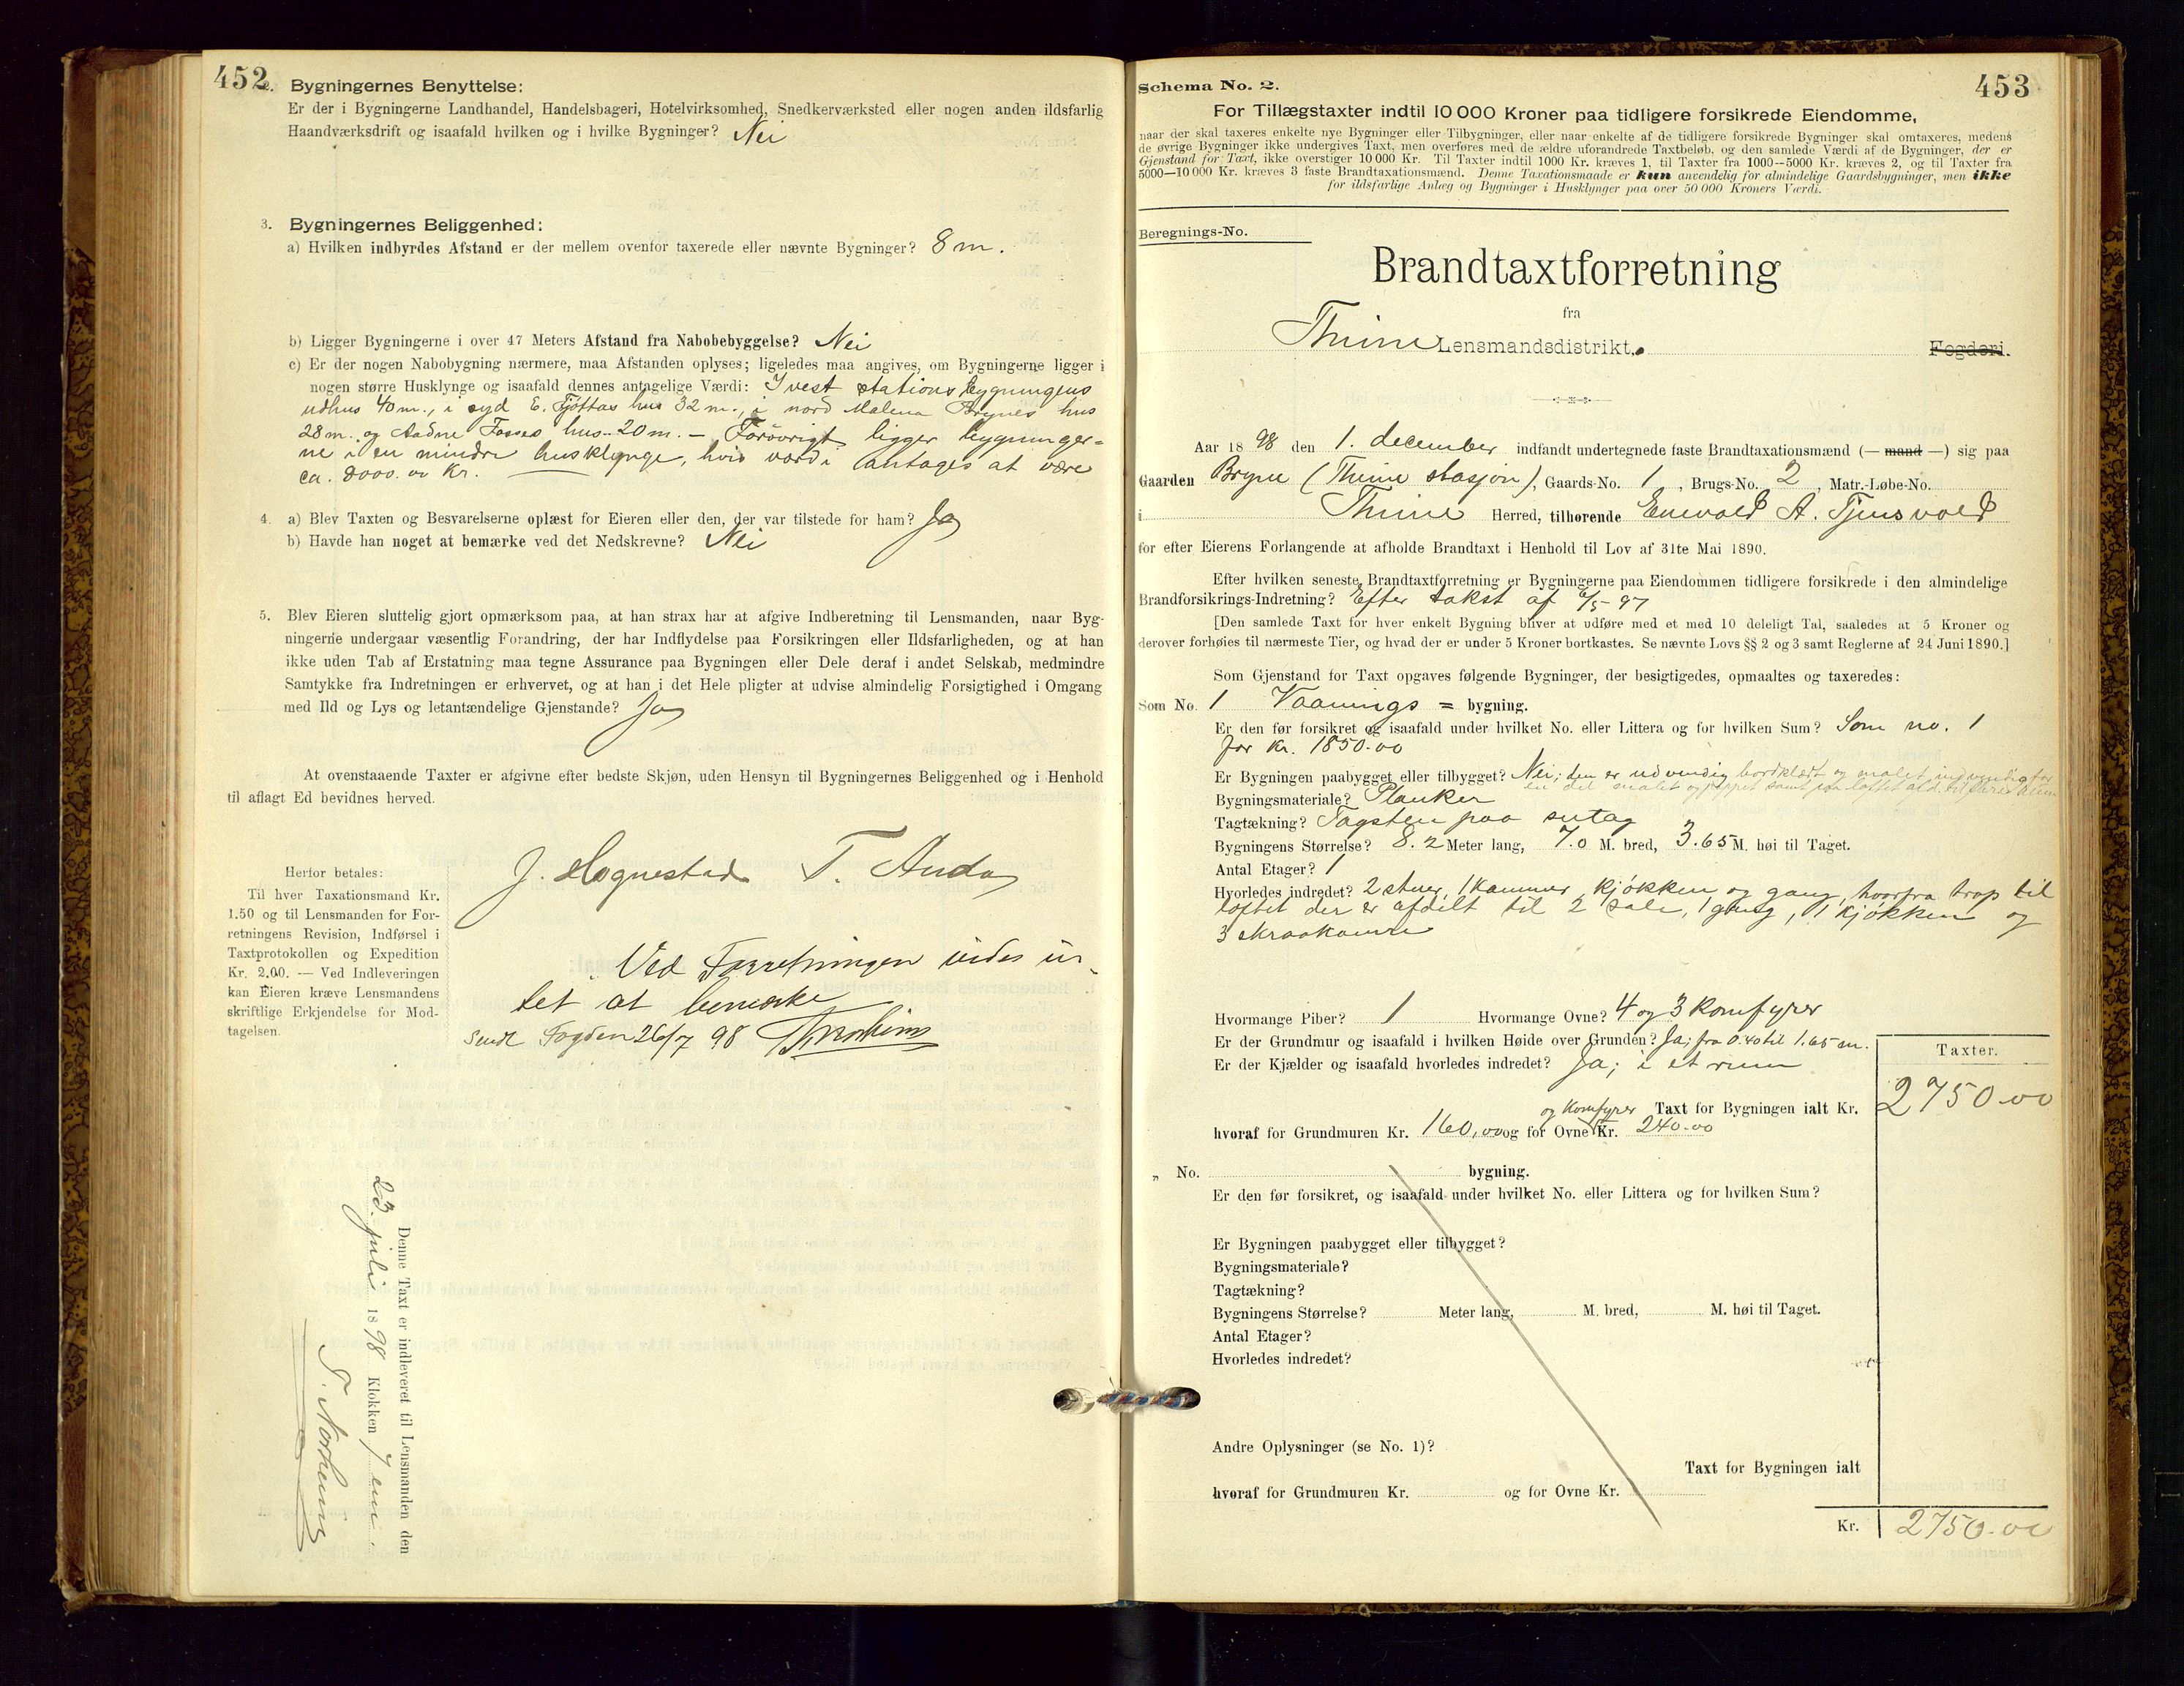 452
2. Bygningernes Benyttelse:
Er der i Bygningerne Landhandel, Handelsbageri, Hotelvirksomhed, Snedkerværksted eller nogen anden ildsfarlig
Haandværksdrift og isaafald hvilken og i hvilke Bygninger? Nei
3. Bygningernes Beliggenhed:
a) Hvilken indbyrdes Afstand er der mellem ovenfor taxerede eller nævnte Bygninger? 8 m.
b) Ligger Bygningerne i over 47 Meters Afstand fra Nabobebyggelse? Nei
c) Er der nogen Nabobygning nærmere, maa Afstanden oplyses; ligeledes maa angives, om Bygningerne ligger i
nogen større Husklynge og isaafald dennes antagelige Værdi: I vest stationsbygningens
udhus 40 m., i syd E. Tjøttas hus 32 m., i nord Malena Brynes hus
28 m. og Aadne Fosses hus 20 m. — Forøvrigt ligger bygninger=
ne i en mindre husklynge, hvis værdi antages at være
ca. 8000.00 Kr.
4. a) Blev Taxten og Besvarelserne oplæst for Eieren eller den, der var tilstede for ham? Ja
b) Havde han noget at bemærke ved det Nedskrevne? Nei
5. Blev Eieren sluttelig gjort opmærksom paa, at han strax har at afgive Indberetning til Lensmanden, naar Byg-
ningerne undergaar væsentlig Forandring, der har Indflydelse paa Forsikringen eller Ildsfarligheden, og at han
ikke uden Tab af Erstatning maa tegne Assurance paa Bygningen eller Dele deraf i andet Selskab, medmindre
Samtykke fra Indretningen er erhvervet, og at han i det Hele pligter at udvise almindelig Forsigtighed i Omgang
med Ild og Lys og letantændelige Gjenstande? Ja
At ovenstaaende Taxter er afgivne efter bedste Skjøn, uden Hensyn til Bygningernes Beliggenhed og i Henhold
til aflagt Ed bevidnes herved.
J. Hognestad T. Anda
Herfor betales:
Til hver Taxationsmand Kr.
1.50 og til Lensmanden for For-
retningens Revision, Indførsel i
Taxtprotokollen og Expedition
Kr. 2.00. — Ved Indleveringen
kan Eieren kræve Lensmandens
skriftlige Erkjendelse for Mod-
tagelsen.
Ved Forretningen vides in-
tet at bemærke
Sendt Fogden 26/7 98
Denne Taxt er indleveret til Lensmanden den
23. juli 1898 Klokken 7 em.
453
Schema No. 2.
For Tillægstaxter indtil 10 000 Kroner paa tidligere forsikrede Eiendomme,
naar der skal taxeres enkelte nye Bygninger eller Tilbygninger, eller naar enkelte af de tidligere forsikrede Bygninger skal omtaxeres, medens
de øvrige Bygninger ikke undergives Taxt, men overføres med de ældre uforandrede Taxtbeløb, og den samlede Værdi af de Bygninger, der er
Gjenstand for Taxt, ikke overstiger 10 000 Kr. Til Taxter indtil 1000 Kr. kræves 1, til Taxter fra 1000—5000 Kr. kræves 2, og til Taxter fra
5000—10 000 Kr. kræves 3 faste Brandtaxationsmænd. Denne Taxationsmaade er kun anvendelig for almindelige Gaardsbygninger, men ikke
for ildsfarlige Anlæg og Bygninger i Husklynger paa over 50 000 Kroners Værdi.
Beregnings-No.
Brandtaxtforretning
fra
Thime Lensmandsdistrikt, Fogderi.
Aar 1898 den 1. december indfandt undertegnede faste Brandtaxationsmænd (— mand —) sig paa
Gaarden Bryne (Thime stasjon), Gaards-No. 1, Brugs-No. 2, Matr.-Løbe-No.
i Thime Herred, tilhørende Enevold A. Tjensvold
for efter Eierens Forlangende at afholde Brandtaxt i Henhold til Lov af 31te Mai 1890.
Efter hvilken seneste Brandtaxtforretning er Bygningerne paa Eiendommen tidligere forsikrede i den almindelige
Brandforsikrings-Indretning? Efter takst af 6/5-97
[Den samlede Taxt for hver enkelt Bygning bliver at udføre med et med 10 deleligt Tal, saaledes at 5 Kroner og
derover forhøies til nærmeste Tier, og hvad der er under 5 Kroner bortkastes. Se nævnte Lovs §§ 2 og 3 samt Reglerne af 24 Juni 1890.]
Som Gjenstand for Taxt opgaves følgende Bygninger, der besigtigedes, opmaaltes og taxeredes:
Som No. 1 Vaanings = bygning.
Er den før forsikret og isaafald under hvilket No. eller Littera og for hvilken Sum? Som no. 1
for kr. 1850.00
Er Bygningen paabygget eller tilbygget? Nei; den er udvendig bordklædt og malet, indvendig for
en del malet og pappet samt paa loftet
Bygningsmateriale? Planker
Tagtækning? Tagsten paa sutag
Bygningens Størrelse? 8.2 Meter lang, 7.0 M. bred, 3.65 M. høi til Taget.
Antal Etager? 1
Hvorledes indredet? 2 stuer, 1 kammer, kjøkken og gang, hvorfra trap til
loftet der er afdelt til 2 sale, 1 gang, 1 kjøkken og
3 skraakamre
Hvormange Piber? 1 Hvormange Ovne? 4 og 3 komfyrer
Er der Grundmur og isaafald i hvilken Høide over Grunden? Ja; fra 0.40 til 1.65 m.
Er der Kjælder og isaafald hvorledes indredet? Ja; i et rum
Taxter.
og komfyrer Taxt for Bygningen ialt Kr. 2750.00
hvoraf for Grundmuren Kr. 160,00 og for Ovne Kr. 240.00
„ No. bygning.
Er den før forsikret, og isaafald under hvilket No. eller Littera og for hvilken Sum?
Er Bygningen paabygget eller tilbygget?
Bygningsmateriale?
Tagtækning?
Bygningens Størrelse? Meter lang, M. bred, M. høi til Taget.
Antal Etager?
Hvorledes indredet?
Andre Oplysninger (se No. 1)?
Taxt for Bygningen ialt
hvoraf for Grundmuren Kr. og for Ovne Kr.
Kr. 2750.00